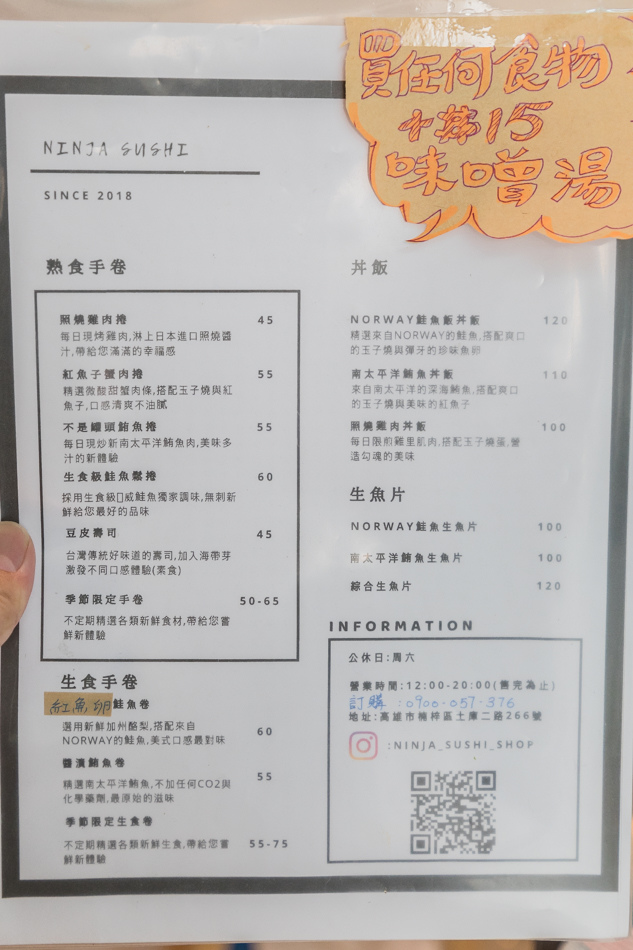 買任何食物
+15
味噌湯
NINJA SUSHI
SINCE 2018
熟食手卷
照燒雞肉捲 45
每日現烤雞肉,淋上日本進口照燒醬
汁,帶給您滿滿的幸福感
紅魚子蟹肉捲 55
精選微酸甜蟹肉條,搭配玉子燒與紅
魚子,口感清爽不油膩
不是罐頭鮪魚捲 55
每日現炒新南太平洋鮪魚肉,美味多
汁的新體驗
生食級鮭魚鬆捲 60
採用生食級▯威鮭魚獨家調味,無刺新
鮮給您最好的品味
豆皮壽司 45
台灣傳統好味道的壽司,加入海帶芽
激發不同口感體驗(素食)
季節限定手卷 50-65
不定期精選各類新鮮食材,帶給您嘗
鮮新體驗
生食手卷
紅魚卵鮭魚卷
選用新鮮加州酪梨,搭配來自 60
NORWAY的鮭魚,美式口感最對味
醬漬鮪魚卷
精選南太平洋鮪魚,不加任何CO2與 55
化學藥劑,最原始的滋味
季節限定生食卷
不定期精選各類新鮮生食,帶給您嘗 55-75
鮮新體驗
丼飯
NORWAY鮭魚飯丼飯 120
精選來自NORWAY的鮭魚,搭配爽口
的玉子燒與彈牙的珍味魚卵
南太平洋鮪魚丼飯 110
來自南太平洋的深海鮪魚,搭配爽口
的玉子燒與美味的紅魚子
照燒雞肉丼飯 100
每日限煎雞里肌肉,搭配玉子燒蛋,營
造勾魂的美味
生魚片
NORWAY鮭魚生魚片 100
南太平洋鮪魚生魚片 100
綜合生魚片 120
INFORMATION
公休日:周六
營業時間:12:00-20:00(售完為止)
訂購:0900-057-376
地址:高雄市楠梓區土庫二路266號
:NINJA_SUSHI_SHOP